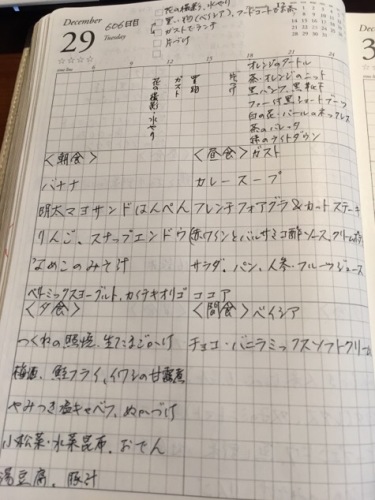 December
29
Tuesday
606日目
花の撮影、水やり
買い物(ベイシア)、フードコートで読書
ガストでランチ
片づけ
6
9
12
15
18
21
24
花の撮影、水やり
ガスト
買物
オレンジのタートル
茶・オレンジのニット
黒パンツ、黒靴下
ファー付黒ショートブーツ
白の花・パールのネックレス
茶のバレッタ
緑のライトダウン
<朝食>
バナナ
明太マヨサンドはんぺん
りんご、スナップエンドウ
なめこのみそ汁
ベリーミックスヨーグルト、カイテキオリゴ
<昼食>ガスト
カレースープ
フレンチフォアグラ&カットステーキ
(赤ワインとバルサミコ酢ソース、クリーム
サラダ、パン、人参・フルーツジュース
ココア
<夕食>
つくねの照焼、生たまごかけ
梅酒、鮭フライ、イワシの甘露煮
やみつき塩キャベツ、ぬかづけ
小松菜・水菜昆布、おでん
湯豆腐、豚汁
<間食>ベイシア
チョコ・バニラミックスソフトクリーム